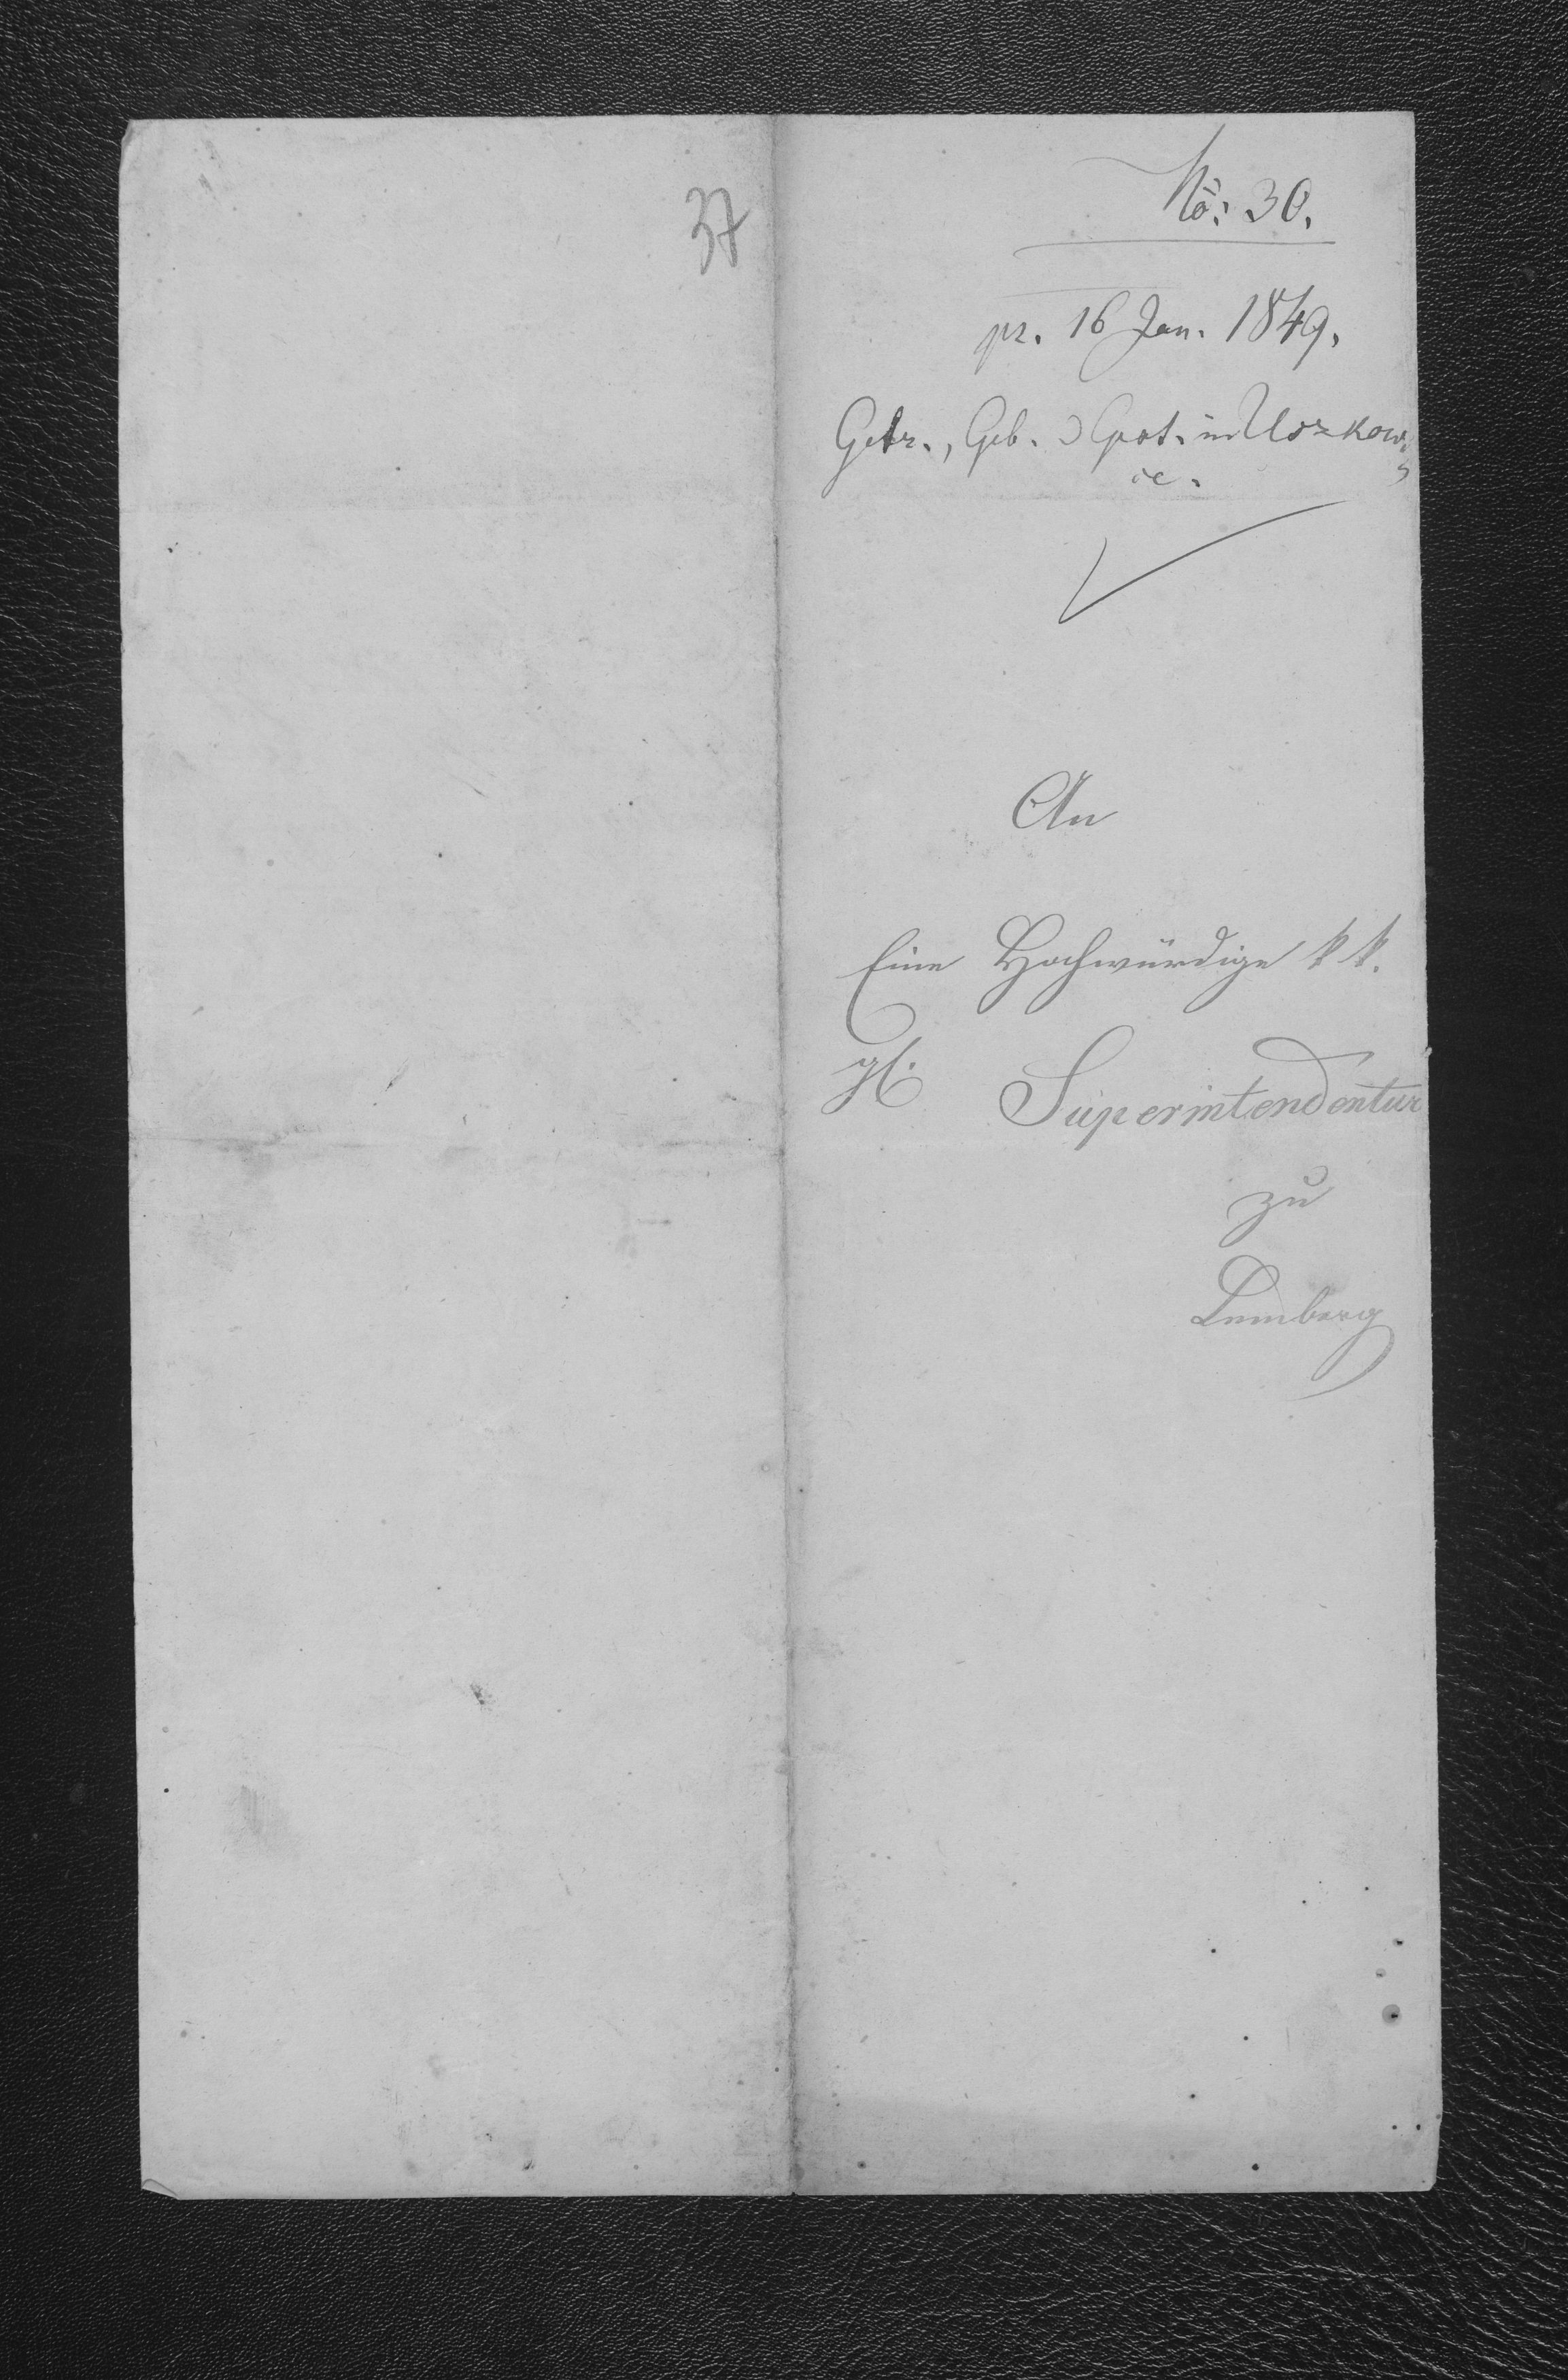 37
No: 30.
pr. 16 Jan. 1849.
Getr., Geb. u Gest. in Uszkow.
ec.
An
Eine Hochwürdige k k.
Superintendentur
zu
Lemberg